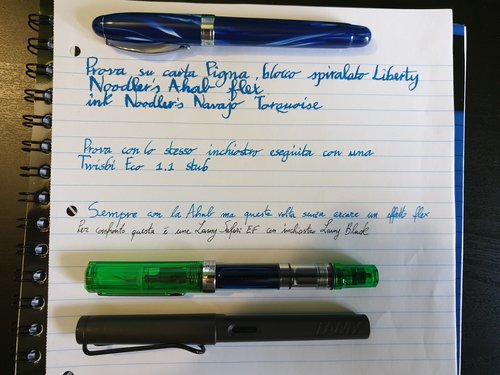 Prova su carta Pigna, blocco spiralato Liberty
Noodler's Ahab flex
ink Noodler's Navajo Torquoise
Prova con lo stesso inchiostro eseguita con una
Twisbi Eco 1.1 stub
Sempre con la Ahab ma questa volta senza cercare un effetto flex
Per confronto questa è una Lamy Safari EF con inchiostro Lamy Black
LAMY